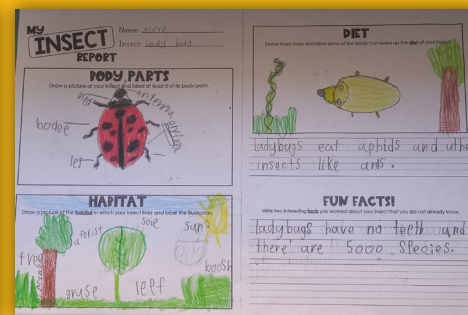 MY
INSECT
REPORT
Name
Insect lady bug
BODY PARTS
Draw a picture of your insect and label at least 3 of its body parts.
antenna
bodee
leg
HABITAT
Draw a picture of the habitat in which your insect lives and label the illustration.
a forist
soie
sun
tree
boosh
gruse
leef
DIET
Draw some of the foods that make up the diet of your insect.
ladybugs eat aphids and othe
insects like ants.
FUN FACTS!
Write two interesting facts you learned about your insect that you did not already know.
ladybugs have no teeth and
there are 5000 Species.